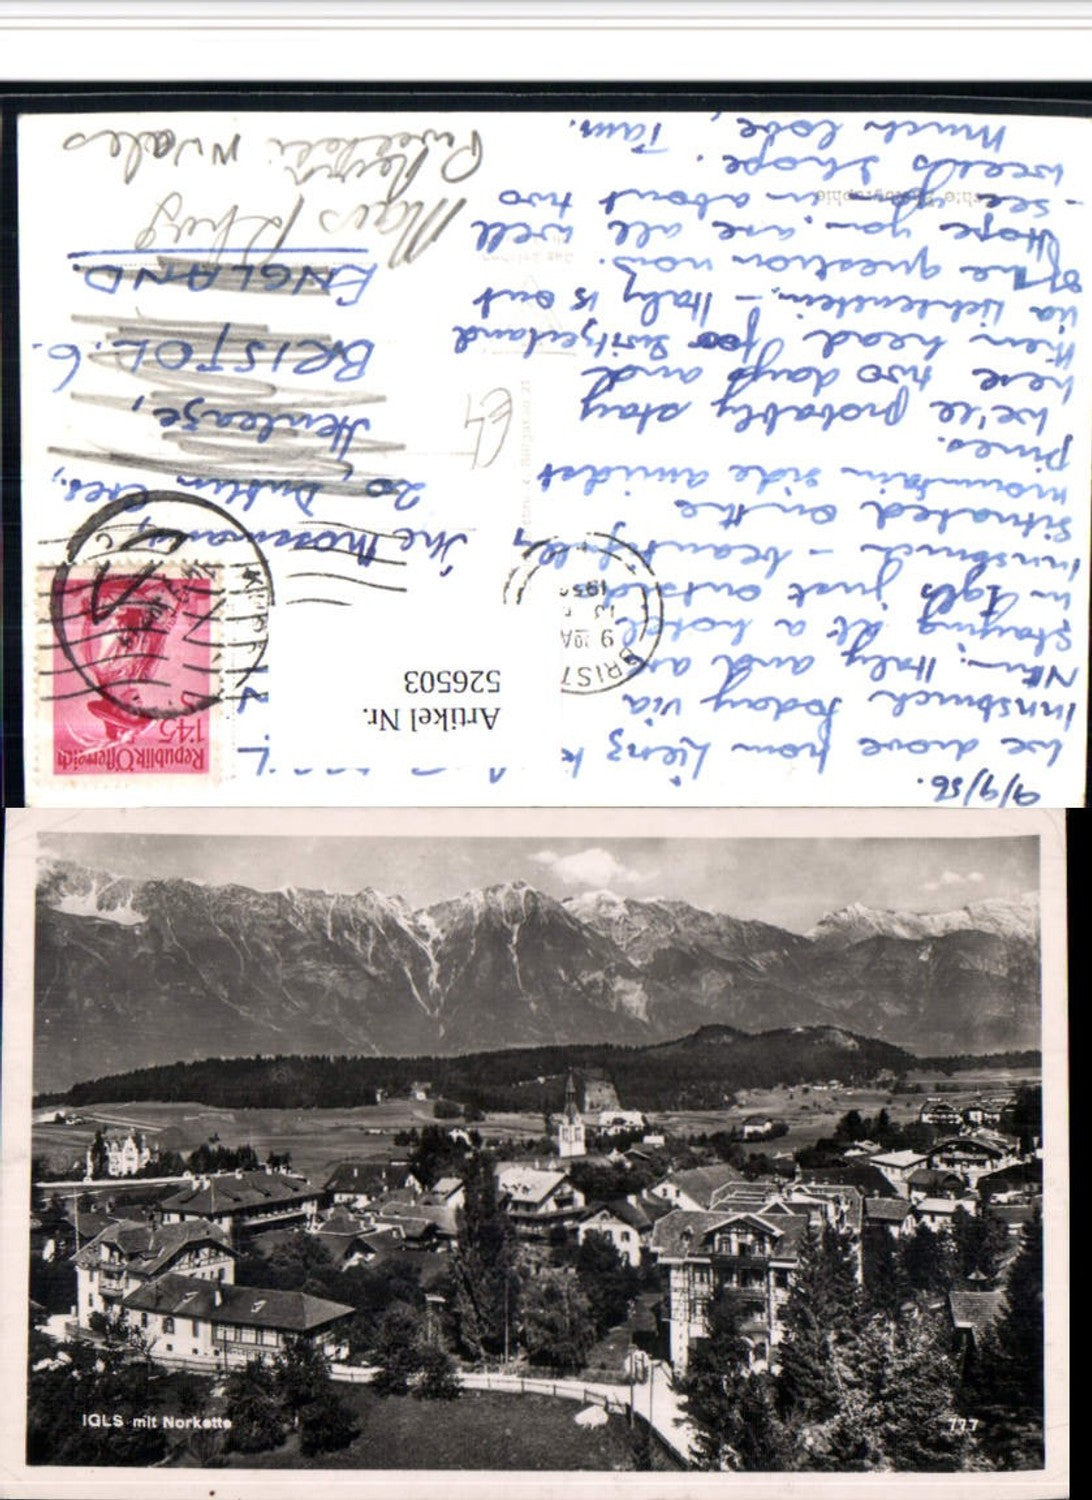 9/9/56.
We drove from Lienz
Innsbruck today via
Italy, and are
staying at a hotel
in Igls just outside
Innsbruck - beautifully
situated on the
mountain side amidst
pines.
We'll probably stay
here two days and
then head for Switzerland
via Lichtenstein. - Italy is out
of the question now.
Hope you are all well
- see you in about two
weeks I hope.
Much love, Tam.
Republik Österreich
1'45
BRIST
9 30A
13
195
Artikel Nr.
526503
The
20, Dublin Cres.,
Henleaze,
BRISTOL. 6.
ENGLAND.
Wales
IGLS mit Norkette
777